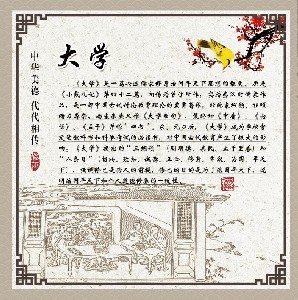 中华美德 代代相传
大学
《大学》是一篇论述儒家修身治国平天下思想的散文，原是
《小戴礼记》第四十二篇，相传为曾子所作，实为秦汉时儒家作
品，是一部中国古代讨论教育理论的重要著作。经北宋程颢、程颐
竭力尊崇，南宋朱熹又作《大学章句》，最终和《中庸》、《论
语》、《孟子》并称“四书”。宋、元以后，《大学》成为学校官
定的教科书和科举考试的必读书，对中国古代教育产生了极大的影
响。《大学》提出的“三纲领”（明明德、亲民、止于至善）和
“八条目”（格物、致知、诚意、正心、修身、齐家、治国、平天
下），强调修己是治人的前提，修己的目的是为了治国平天下，说
明治国平天下和个人道德修养的一致性。